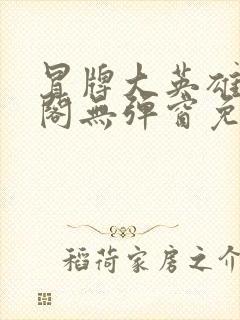 冒牌大英雄
閣無彈窗免
稻荷家房之介